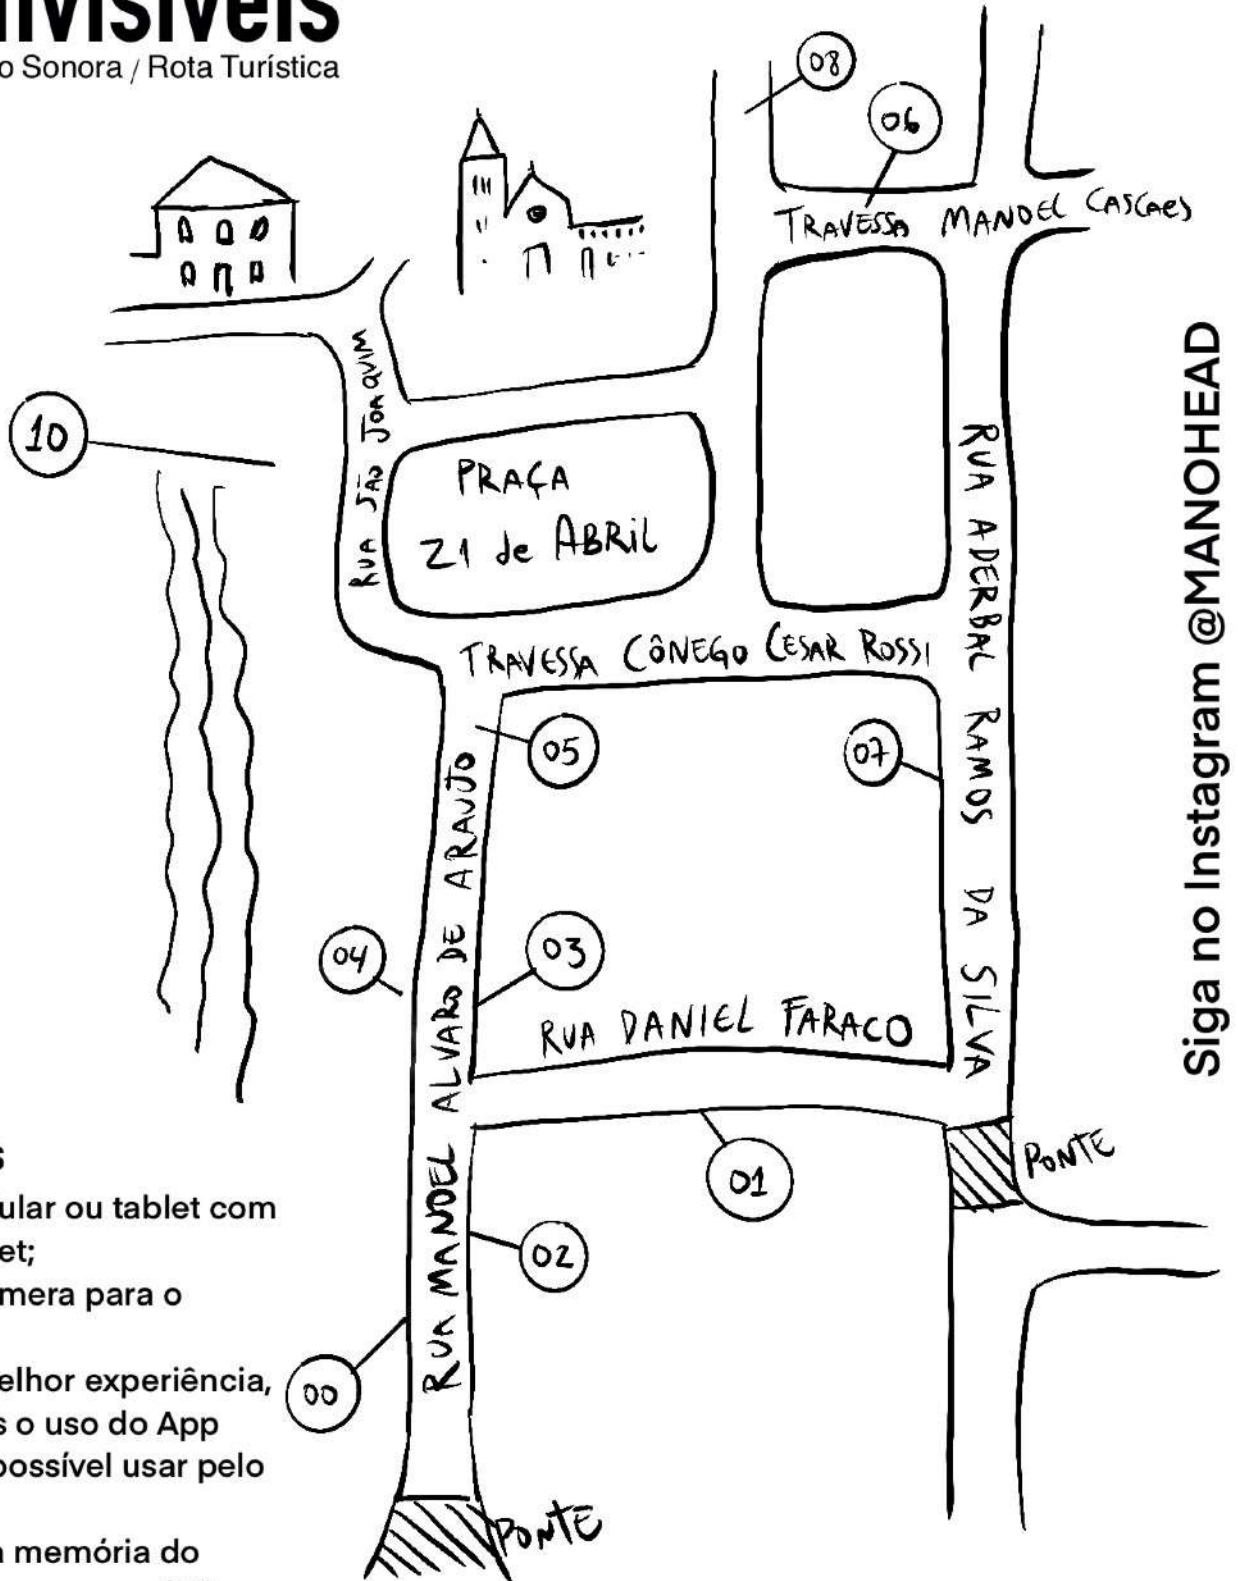 nvisíveis
o Sonora / Rota Turística
08
06
TRAVESSA MANOEL CASCAES
RUA SÃO JOAQUIM
10
PRAÇA
21 de ABRIL
RUA ADERBAL RAMOS DA SILVA
TRAVESSA CÔNEGO CESAR ROSSI
05
07
RUA MANOEL ALVARO DE ARAUJO
04
03
RUA DANIEL FARACO
01
PONTE
02
00
PONTE
Siga no Instagram @MANOHEAD
s
ular ou tablet com
et;
mera para o
elhor experiência,
s o uso do App
possível usar pelo
a memória do